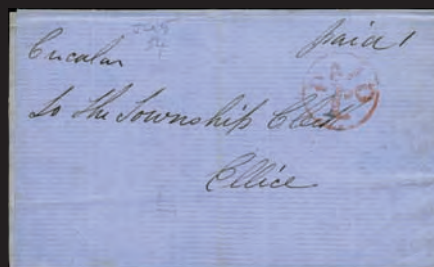 Circular
paid 1
To the Township Clerk
Ellice